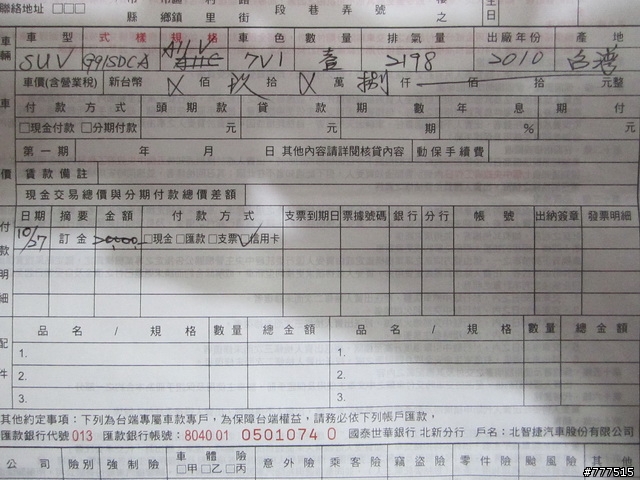 聯絡地址 □□□ 縣 鄉鎮 里 街 段 巷 弄 號 之 日
車輛 車型 式樣 規格 車色 數量 排氣量 出廠年份 產地
SUV G91SDCA 7V1 壹 2198 2010 台灣
車價(含營業稅) 新台幣 X 佰 玖 拾 X 萬 捌 仟 佰 拾 元整
車 付款方式 頭期款 貸款 期數 年息 期付
□現金付款 □分期付款 元 元 期 % 元
第一期 年 月 日 其他內容請詳閱核貸內容 動保手續費
價 貸款備註
現金交易總價與分期付款總價差額
付款明細 日期 摘要 金額 付款方式 支票到期日 票據號碼 銀行 分行 帳號 出納簽章 發票明細
10/27 訂金 20000 □現金 □匯款 □支票 □信用卡
配件 品名/規格 數量 總金額 品名/規格 數量 總金額
1. 1.
2. 2.
3. 3.
其他約定事項：下列為台端專屬車款專戶，為保障台端權益，請務必依下列帳戶匯款，
匯款銀行代號 013 匯款銀行帳號：8040 01 0501074 0 國泰世華銀行 北新分行 戶名：北智捷汽車股份有限公司
公司 險別 強制險 車體險 □甲□乙□丙 意外險 乘客險 竊盜險 零件險 颱風險 其他
#777515